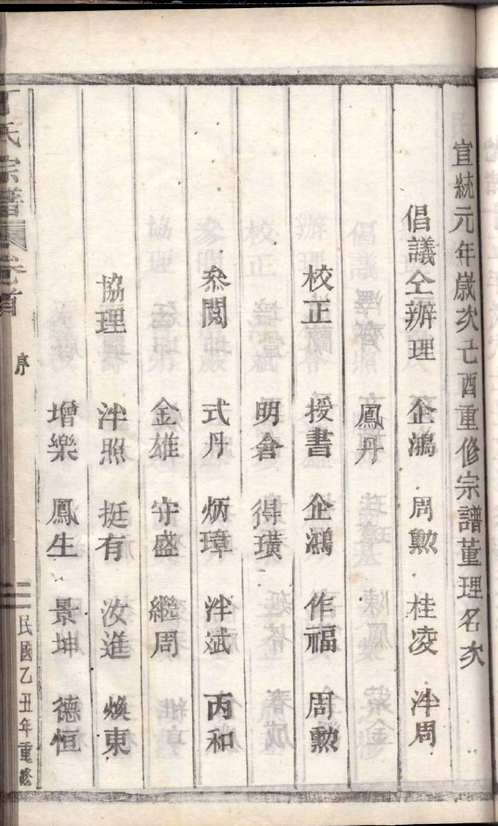 宣統元年歲次己酉重修宗譜董理名次
倡議仝辦理 企鴻 周勲 桂凌 泮周
鳳丹
校正 援書 企鴻 作福 周勲
明倉 得璜
叅閱 式丹 炳璋 泮斌 丙和
金雄 守盛 繼周
協理 泮照 挺有 汝進 煥東
增樂 鳳生 景坤 德恒
丁氏宗譜 卷首 序 二 民國乙丑年重修